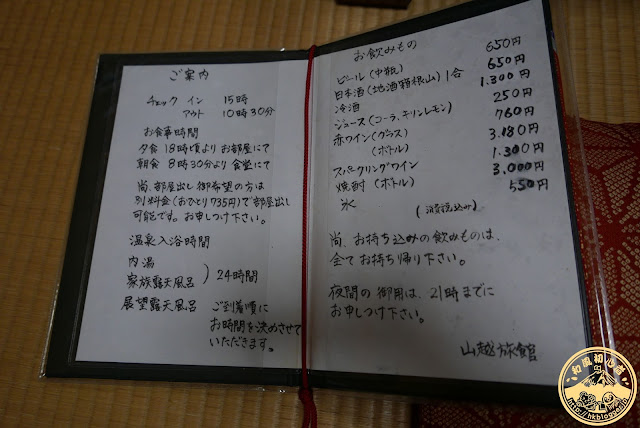 ご案内
チェック イン 15時
アウト 10時30分
お食事時間
夕食 18時頃よりお部屋にて
朝食 8時30分より食堂にて
尚、部屋出し御希望の方は
別料金(おひとり735円)で部屋出し
可能です。お申しつけ下さい。
温泉入浴時間
内湯
家族露天風呂 ) 24時間
展望露天風呂 ご到着順に
お時間を決めさせて
いただきます。
お飲みもの
ビール(中瓶) 650円
日本酒(地酒箱根山)1合 650円
冷酒 1.300円
ジュース(コーラ、キリンレモン) 250円
赤ワイン(グラス) 760円
(ボトル) 3.180円
スパークリングワイン 1.300円
焼酎(ボトル) 3.000円
氷 550円
(消費税込み)
尚、お持ち込みの飲みものは、
全てお持ち帰り下さい。
夜間の御用は、21時までに
お申しつけ下さい。
山越旅館
和風初心者